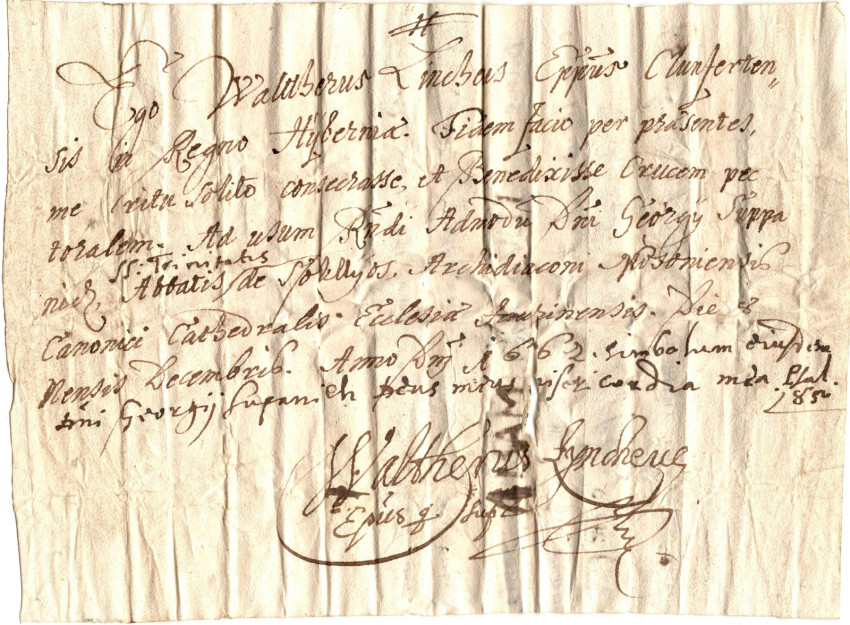 H
Ego Waltherus Lincheus Eppus Clunferten„
sis in Regno Hyberniæ. Fidem facio per præsentes,
me ritu solito consecrasse, et Benedixisse Crucem pec
toralem. Ad usum Rndi Admodu Dni Georgÿ Suppa
SS. Trinitatis
nich, Abbatis de Archidiaconi Posoniensis
Canonici Cathedralis Ecclesiæ Jaurinensis. Die 8
Mensis Decembris. Anno Dni 1662. simbolum eiusdem
Dni Georgij Supanich Deus meus misericordia mea Psal.
Waltherus Lyncheus
Epus q supr